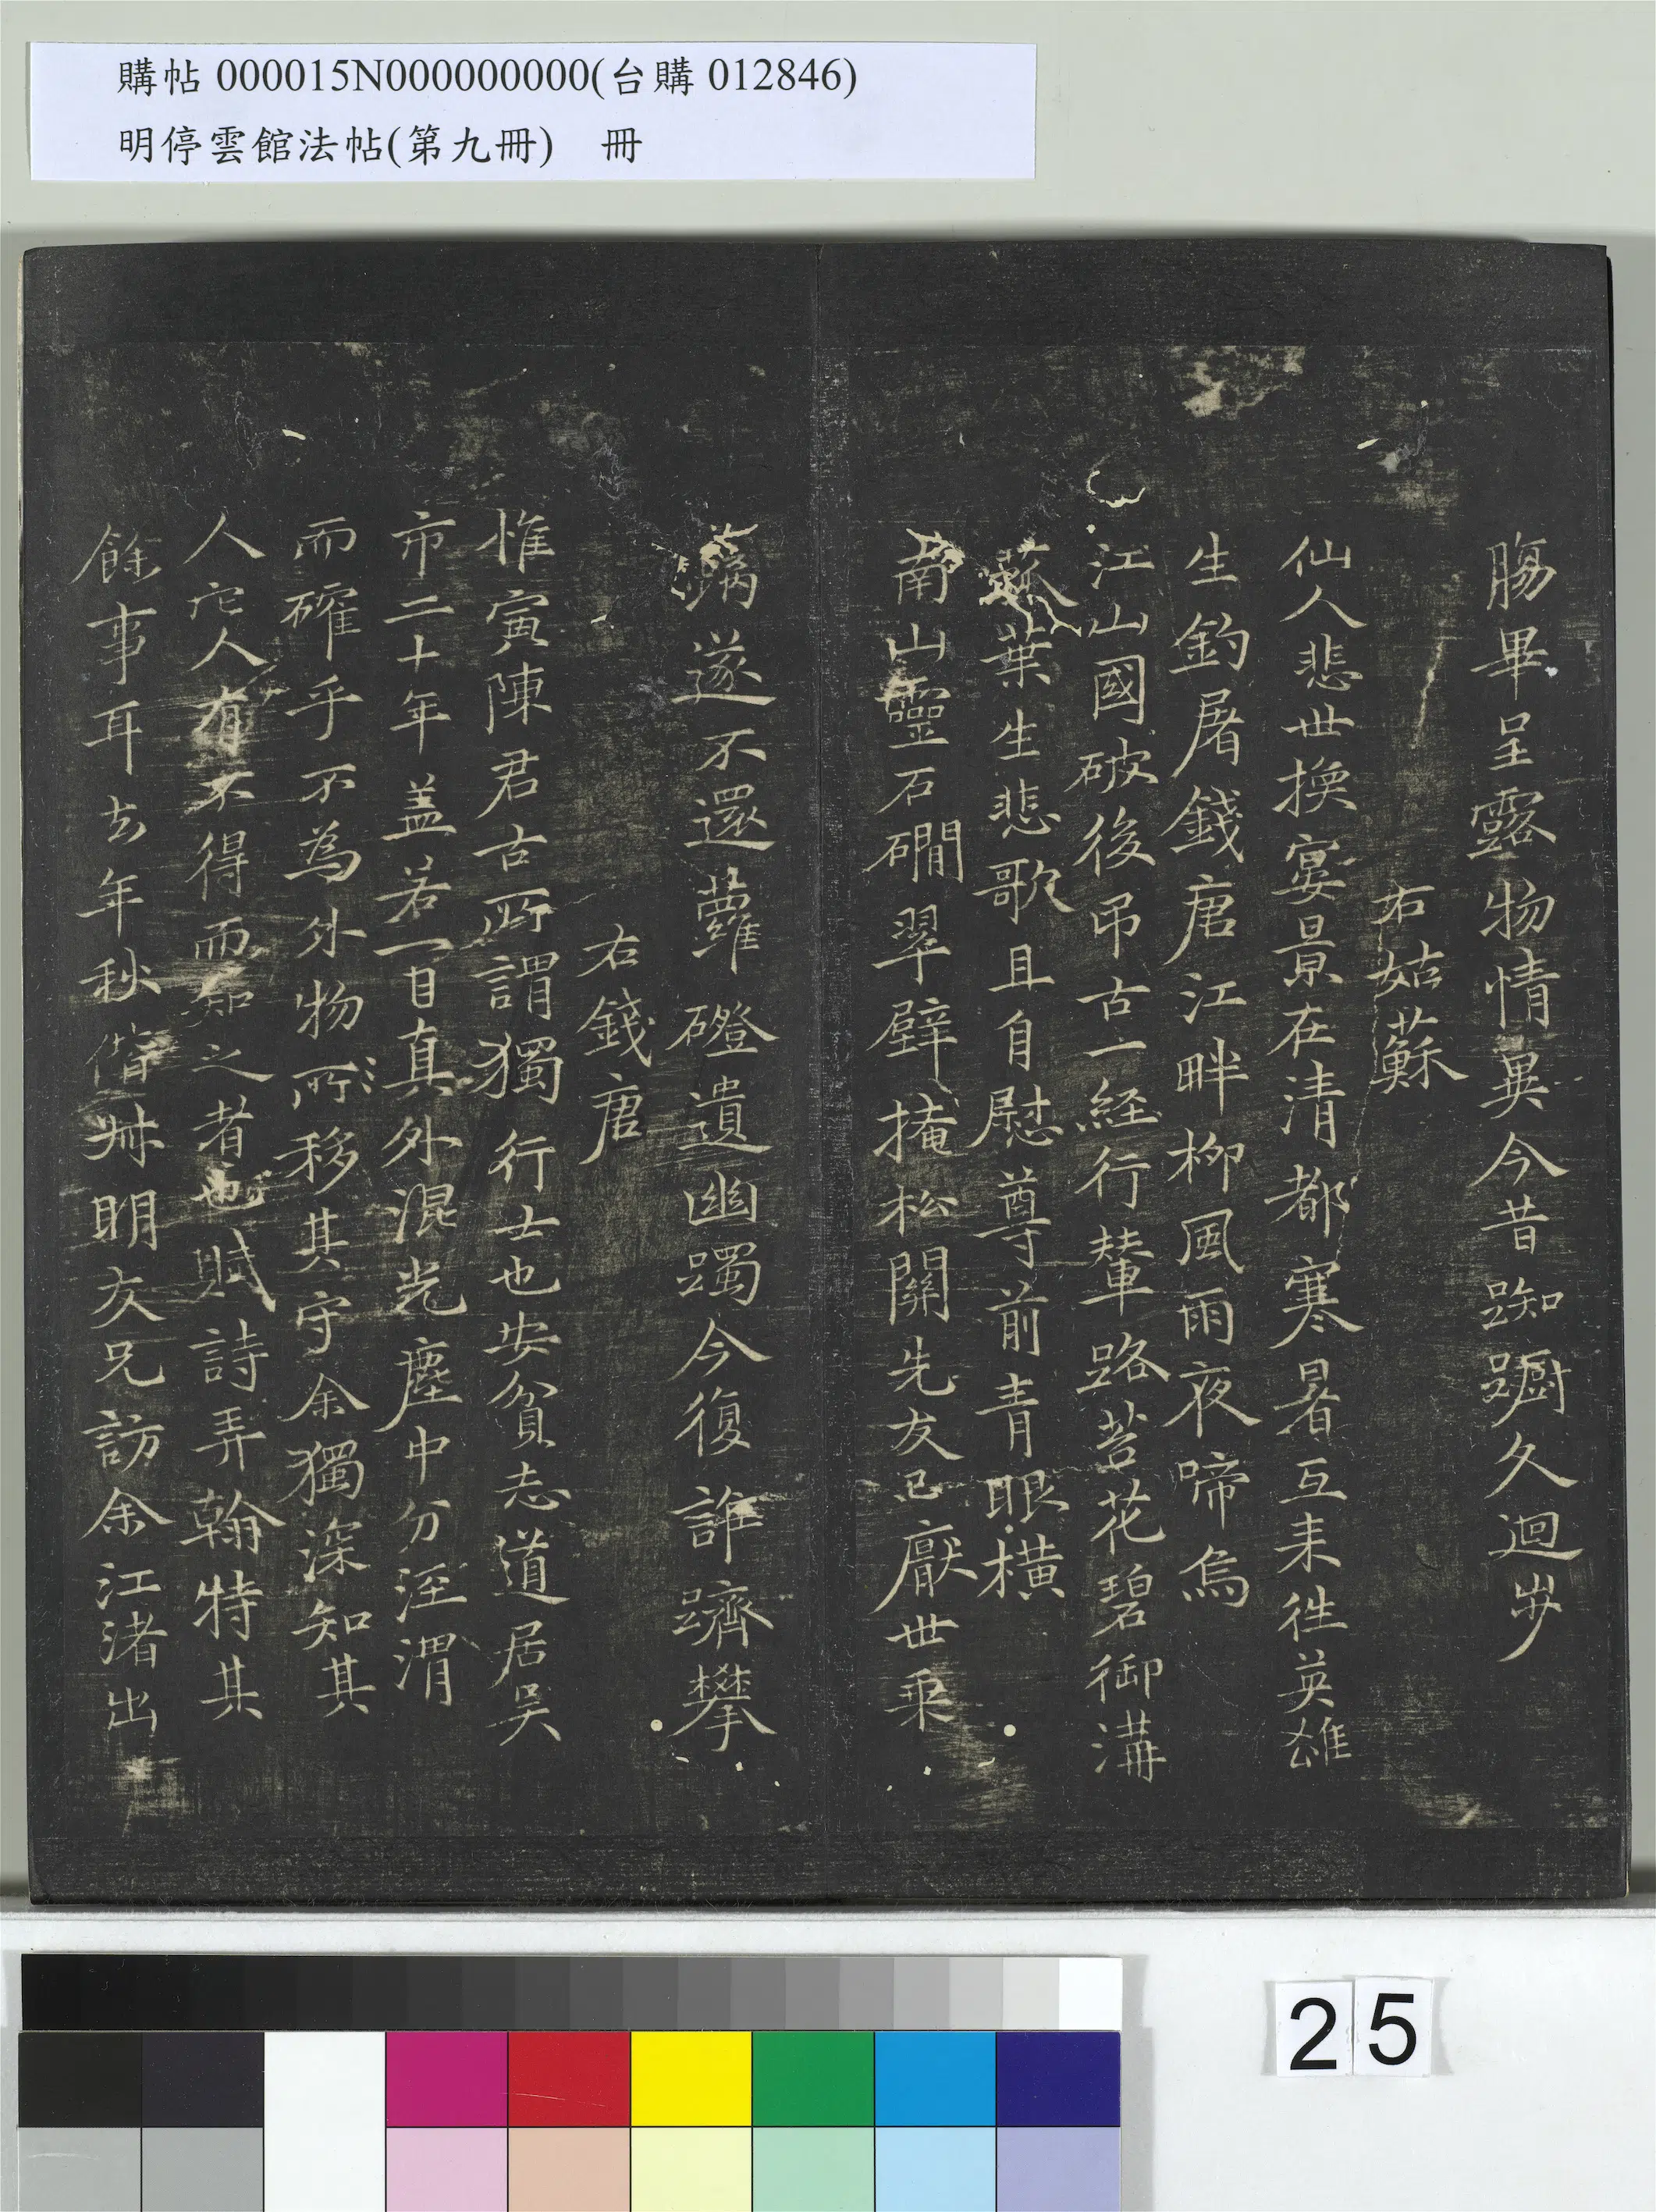 購帖000015N000000000(台購012846)
明停雲館法帖(第九冊)　冊
腸畢呈露物情異今昔踟躕久迴步
右姑蘇
仙人悲世換宴景在清都寒暑互来往英雄
生釣屠錢唐江畔柳風雨夜啼烏
江山國破後吊古一経行輦路苔花碧御溝
葉生悲歌且自慰尊前青眼橫
南山靈石磵翠壁掩松關先友已厭世乘
遂不還蘿磴遺幽躅今復誰躋攀
右錢唐
惟寅陳君古所謂獨行士也安貧志道居吴
市二十年盖若一日真外混光塵中分涇渭
而確乎不為外物所移其守余獨深知其
人它人有不得而知之者也賦詩弄翰特其
餘事耳去年秋偕叔明友兄訪余江渚出
25